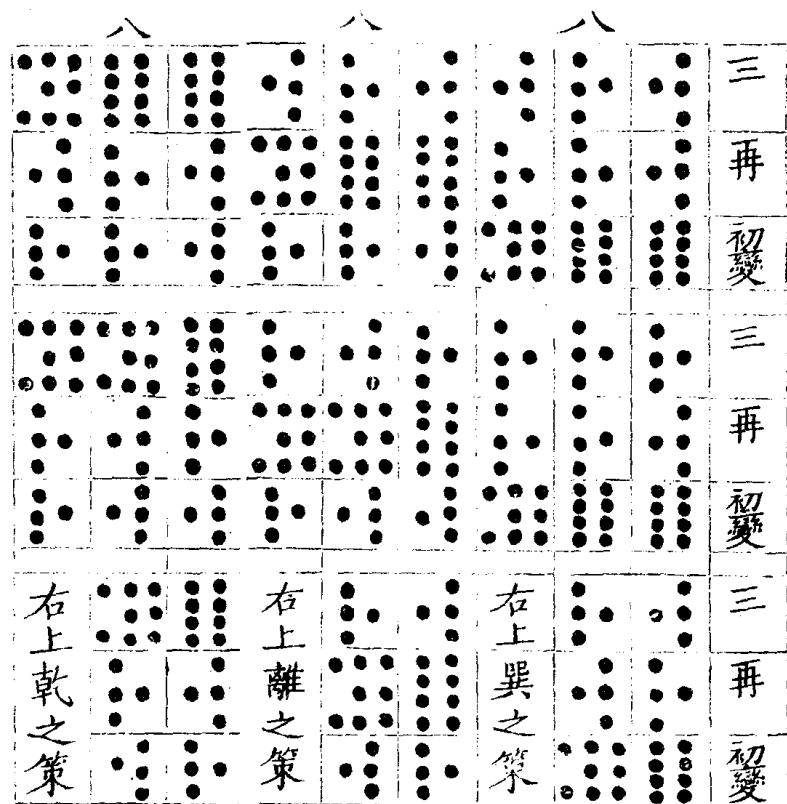 八
八
八
三
再
初變
三
再
初變
三
再
初變
右上巽之策
右上離之策
右上乾之策